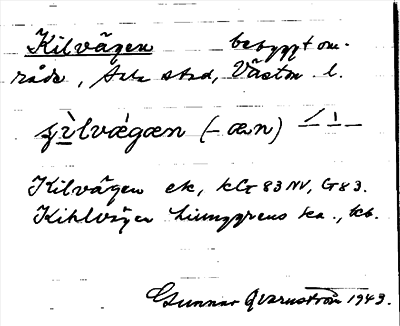 Kilvägen bebyggt om-
råde, Arla stad, Västm. l.
çìlvǽgæn (-æn)
Kilvägen ek, kG 83 NV, G 83.
Kihlvägen Ljunggrens ka., kb.
Gunnar Qvarnström 1943.